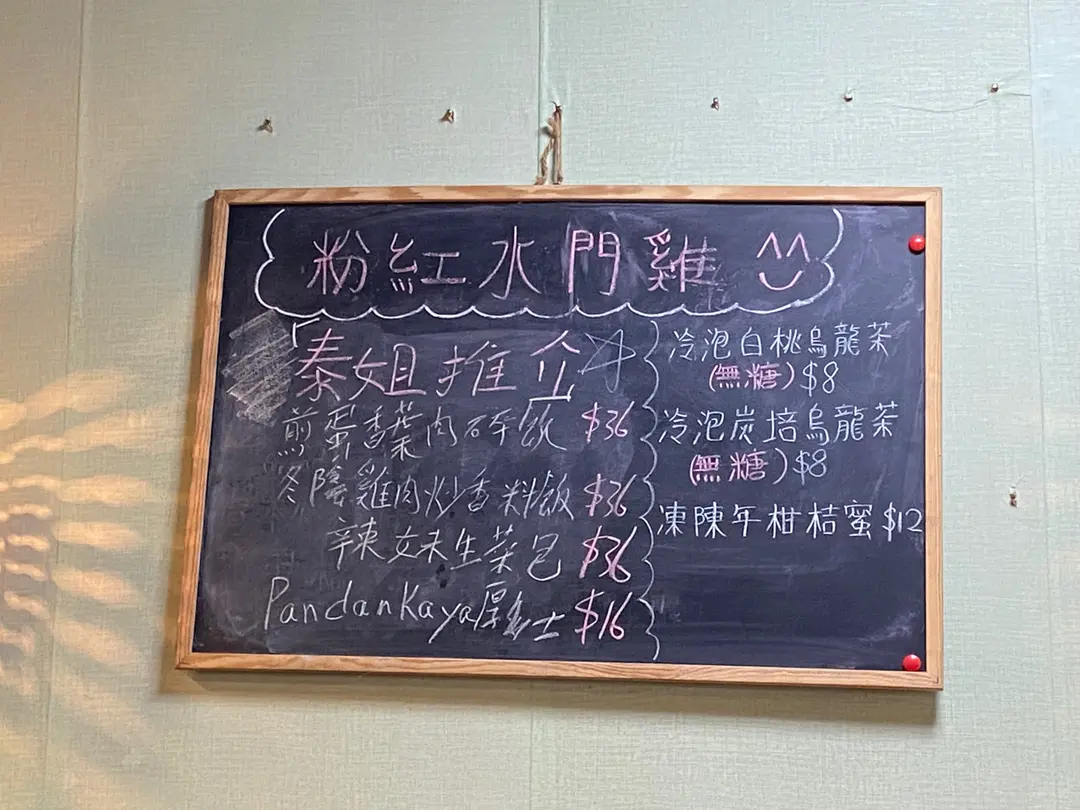 粉紅水門雞
「泰姐推介
煎蛋香葉肉碎飯 $36
冬陰雞肉炒香料飯 $36
辣妹生菜包 $36
Pandan Kaya厚多士 $16
冷泡白桃烏龍茶
(無糖) $8
冷泡炭培烏龍茶
(無糖) $8
凍陳年柑桔蜜 $12